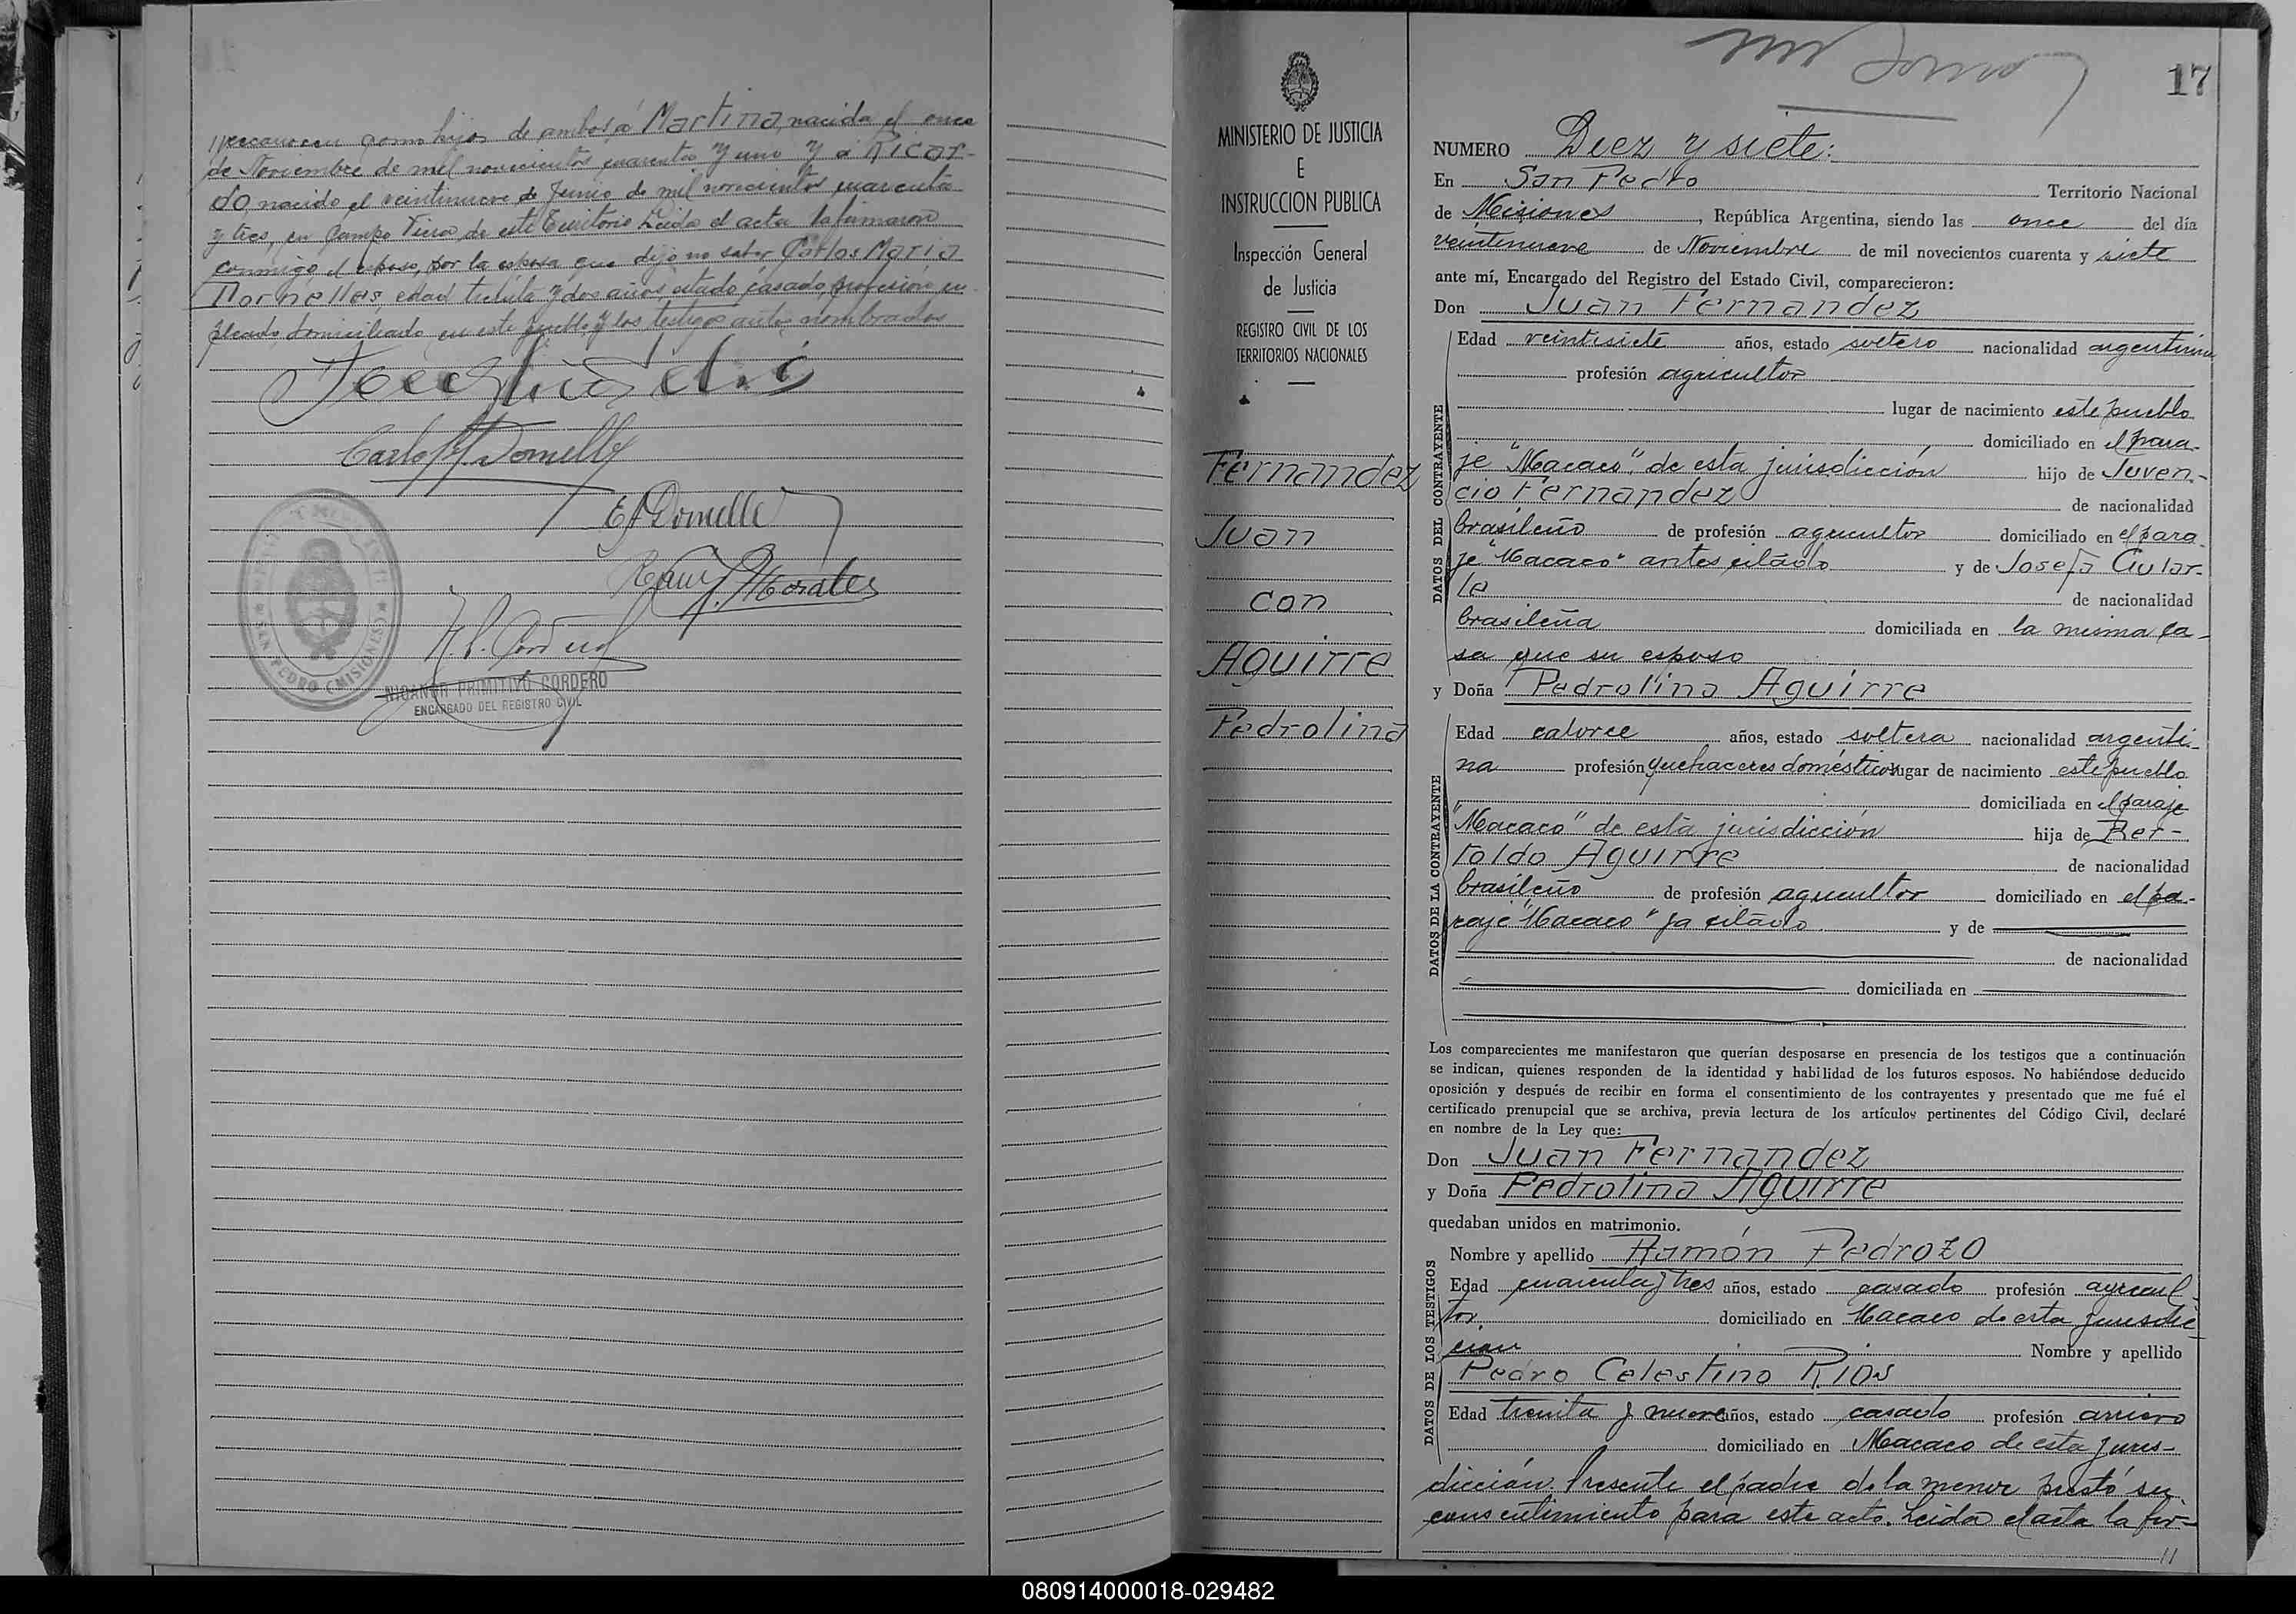 reconocen como hijos de ambos a Martina, nacida el once
de Noviembre de mil novecientos cuarenta y uno y a Ricar-
do nacido el veintinueve de Junio de mil novecientos cuarenta
y tres, en Campo Viera de este Territorio Leida el acta la firmaron
conmigo el esposo, por la esposa que dijo no saber Carlos Maria
Dornelles, edad treinta y dos años, estado casado, profesión em-
pleado, domiciliado en este pueblo y los testigos antes nombrados
Carlos M. Dornelles
E. Dornelles
Morales
SAN PEDRO (MISIONES)
NICANOR PRIMITIVO CORDERO
ENCARGADO DEL REGISTRO CIVIL
MINISTERIO DE JUSTICIA
E
INSTRUCCION PUBLICA
Inspección General
de Justicia
REGISTRO CIVIL DE LOS
TERRITORIOS NACIONALES
Fernandez
Juan
con
Aguirre
Pedrolina
17
NUMERO Diez y siete:
En San Pedro Territorio Nacional
de Misiones, República Argentina, siendo las once del día
veintinueve de Noviembre de mil novecientos cuarenta y siete
ante mí, Encargado del Registro del Estado Civil, comparecieron:
Don Juan Fernandez
DATOS DEL CONTRAYENTE
Edad veintisiete años, estado soltero nacionalidad argentina
profesión agricultor
lugar de nacimiento este pueblo
domiciliado en el para-
je "Macaco" de esta jurisdicción hijo de Juven-
cio Fernandez de nacionalidad
brasileño de profesión agricultor domiciliado en el para-
je "Macaco" antes citado y de Josefa Gular-
te de nacionalidad
brasileña domiciliada en la misma ca-
sa que su esposo
y Doña Pedrolina Aguirre
DATOS DE LA CONTRAYENTE
Edad catorce años, estado soltera nacionalidad argenti-
na profesión quehaceres domésticos lugar de nacimiento este pueblo
domiciliada en el paraje
"Macaco" de esta jurisdicción hija de Ber-
toldo Aguirre de nacionalidad
brasileño de profesión agricultor domiciliado en el pa-
raje "Macaco" ya citado y de
de nacionalidad
domiciliada en
Los comparecientes me manifestaron que querían desposarse en presencia de los testigos que a continuación
se indican, quienes responden de la identidad y habilidad de los futuros esposos. No habiéndose deducido
oposición y después de recibir en forma el consentimiento de los contrayentes y presentado que me fué el
certificado prenupcial que se archiva, previa lectura de los artículos pertinentes del Código Civil, declaré
en nombre de la Ley que:
Don Juan Fernandez
y Doña Pedrolina Aguirre
quedaban unidos en matrimonio.
DATOS DE LOS TESTIGOS
Nombre y apellido Ramón Pedrozo
Edad cuarenta y tres años, estado casado profesión agricul-
tor. domiciliado en Macaco de esta jurisdic-
cion Nombre y apellido
Pedro Celestino Rios
Edad treinta y nueve años, estado casado profesión arriero
domiciliado en Macaco de esta juris-
dicción. Presente el padre de la menor prestó su
consentimiento para este acto. Leida el acta la fir-
//
080914000018-029482